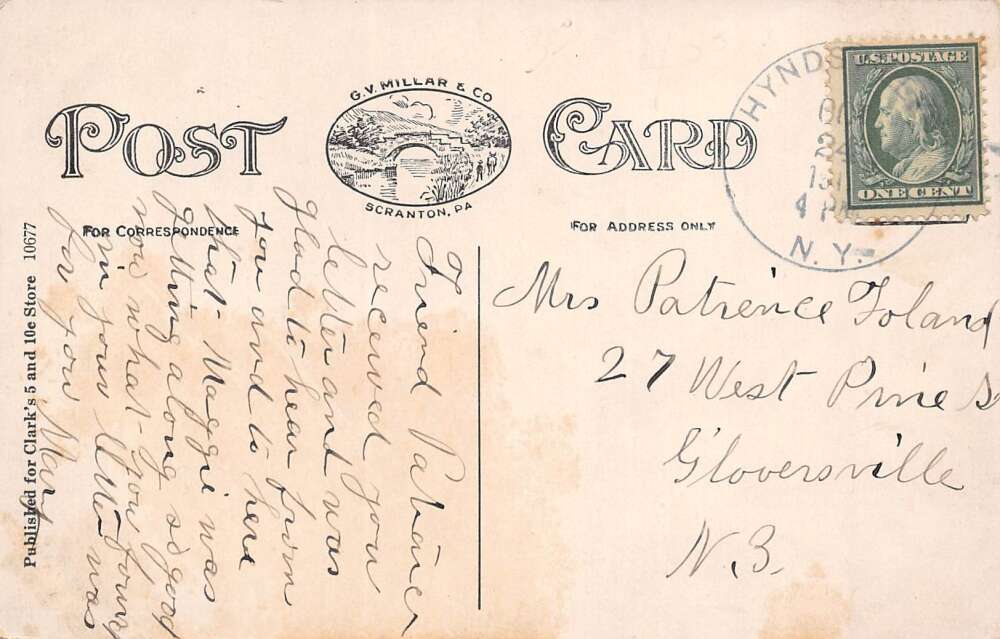 POST CARD
G.V. MILLAR & CO
SCRANTON, PA
FOR CORRESPONDENCE
FOR ADDRESS ONLY
Published for Clark's 5 and 10c Store 10677
HYNDS
4 P
N.Y.
U.S. POSTAGE
ONE CENT
Friend Patience
received you
letter and was
glad to hear from
you and to here
that Maggie was
getting along so good
now what you found
in your letter was
for you Mary
Mrs Patrience Toland
27 West Pine S
Gloversville
N.Y.